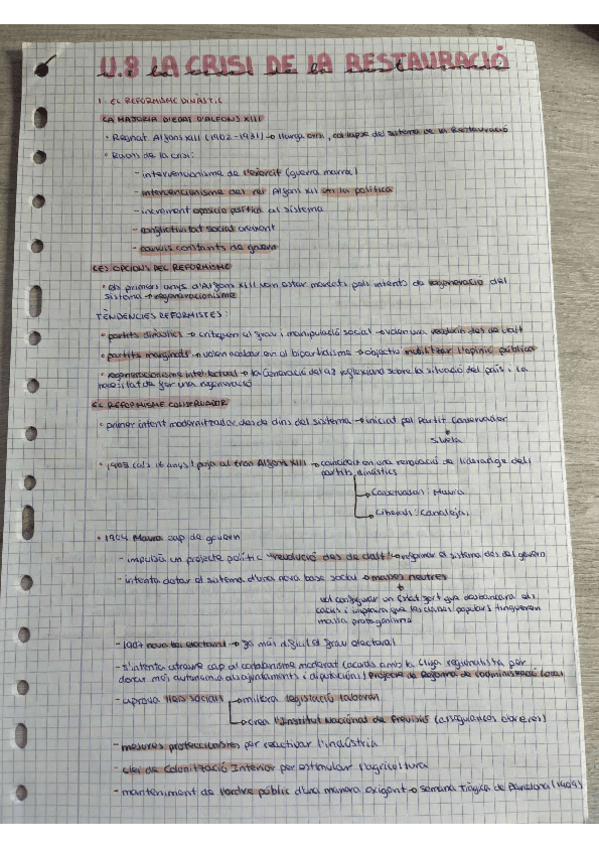 U.8 LA CRISI DE LA RESTAURACIÓ
1. EL REFORMISME DINÀSTIC
LA MAJORIA D'EDAT D'ALFONS XIII
• Regnat Alfons XIII (1902-1931) → llarga crisi, col·lapse del sistema de la Restauració
• Raons de la crisi:
- intervencionisme de l'exèrcit (guerra marroc)
- intervencionisme del rei Alfons XIII en la política
- increment oposició política al sistema
- conflictivitat social creixent
- canvis constants de govern
LES OPCIONS DEL REFORMISME
• els primers anys d'Alfons XIII van estar marcats pels intents de regeneració del
sistema → regeneracionisme
TENDÈNCIES REFORMISTES:
• partits dinàstics → critiquen el frau i manipulació social → volen una revolució des de dalt
• partits marginats → volen acabar en el bipartidisme → objectiu mobilitzar l'opinió pública
• regeneracionisme intel·lectual → la Generació del 98 reflexiona sobre la situació del país i la
necessitat de fer una regeneració
EL REFORMISME CONSERVADOR
• primer intent modernitzador des de dins del sistema → iniciat pel Partit Conservador
Silvela
• 1902 (als 16 anys) puja al tron Alfons XIII → coincideix en una renovació de lideratge dels
partits dinàstics
→ Conservadors: Maura
→ Liberals: Canalejas
• 1904 Maura cap de govern
- impulsà un projecte polític "revolució des de dalt" → regenerar el sistema des del govern
- intenta dotar el sistema d'una nova base social → masses neutres
vol configurar un Estat fort que desbancara els
cacics i impedira que les classes populars tingueren
massa protagonisme
- 1907 nova llei electoral → fa més difícil el frau electoral
- s'intenta atraure cap al catalanisme moderat (acords amb la Lliga regionalista per
donar més autonomia als ajuntaments i diputacions) Projecte de Reforma de l'administració local
- aprova lleis socials → millora legislació laboral
→ crea l'Institut Nacional de Previsió (assegurances obreres)
- mesures proteccionistes per reactivar l'indústria
- Llei de Colonització Interior per estimular l'agricultura
- manteniment de l'ordre públic d'una manera exigent → Setmana Tràgica de Barcelona (1909)